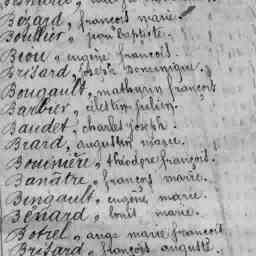 Bézard, françois marie.
Boullier, jean baptiste.
Biou, eugène françois.
Brisard, joseph Dominique.
Bougault, mathurin françois
Barbier, célestin julien.
Baudet, charles joseph.
Briard, augustin marie.
Bouinière, théodore françois.
Banâtre, françois marie.
Bingault, eugène marie.
Bénard, louis marie.
Botrel, ange marie francois
Brisard, françois auguste.